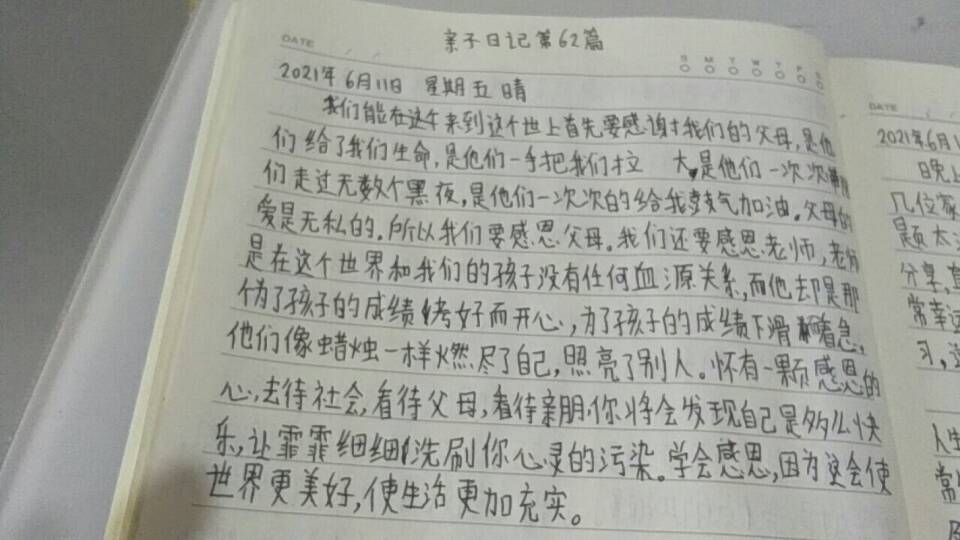 亲子日记第62篇
DATE
S M T W T F S
2021年6月11日 星期五 晴
我们能在这午来到这个世上首先要感谢我们的父母,是他
们给了我们生命,是他们一手把我们拉 大,是他们一次次
们走过无数个黑夜,是他们一次次的给我鼓气加油。父母的
爱是无私的。所以我们要感恩父母。我们还要感恩老师,老师
是在这个世界和我们的孩子没有任何血源关系,而他却是那
个为了孩子的成绩考好而开心,为了孩子的成绩下滑而着急,
他们像蜡烛一样燃尽了自己,照亮了别人。怀有一颗感恩的
心,去待社会,看待父母,看待亲朋,你将会发现自己是多么快
乐,让霏霏细细洗刷你心灵的污染。学会感恩,因为这会使
世界更美好,使生活更加充实。
DATE
2021年6月1
晚上
几位家
题太
分享,
常幸运
习,这
人生
常